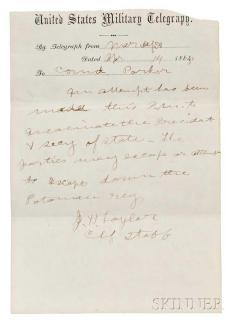 United States Military Telegraph.
By Telegraph from
Dated 14 1865.
To Comd Parker
An attempt has been
made this P.m. to
assassinate the President
& secy of state. The
parties may escape or attempt
to escape down the
Potomac
J H Taylor
Chf Staff
SKINNER